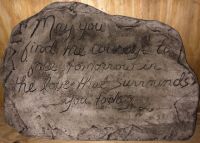 May you
find the courage to
face tomorrow in
the love that surrounds
you today